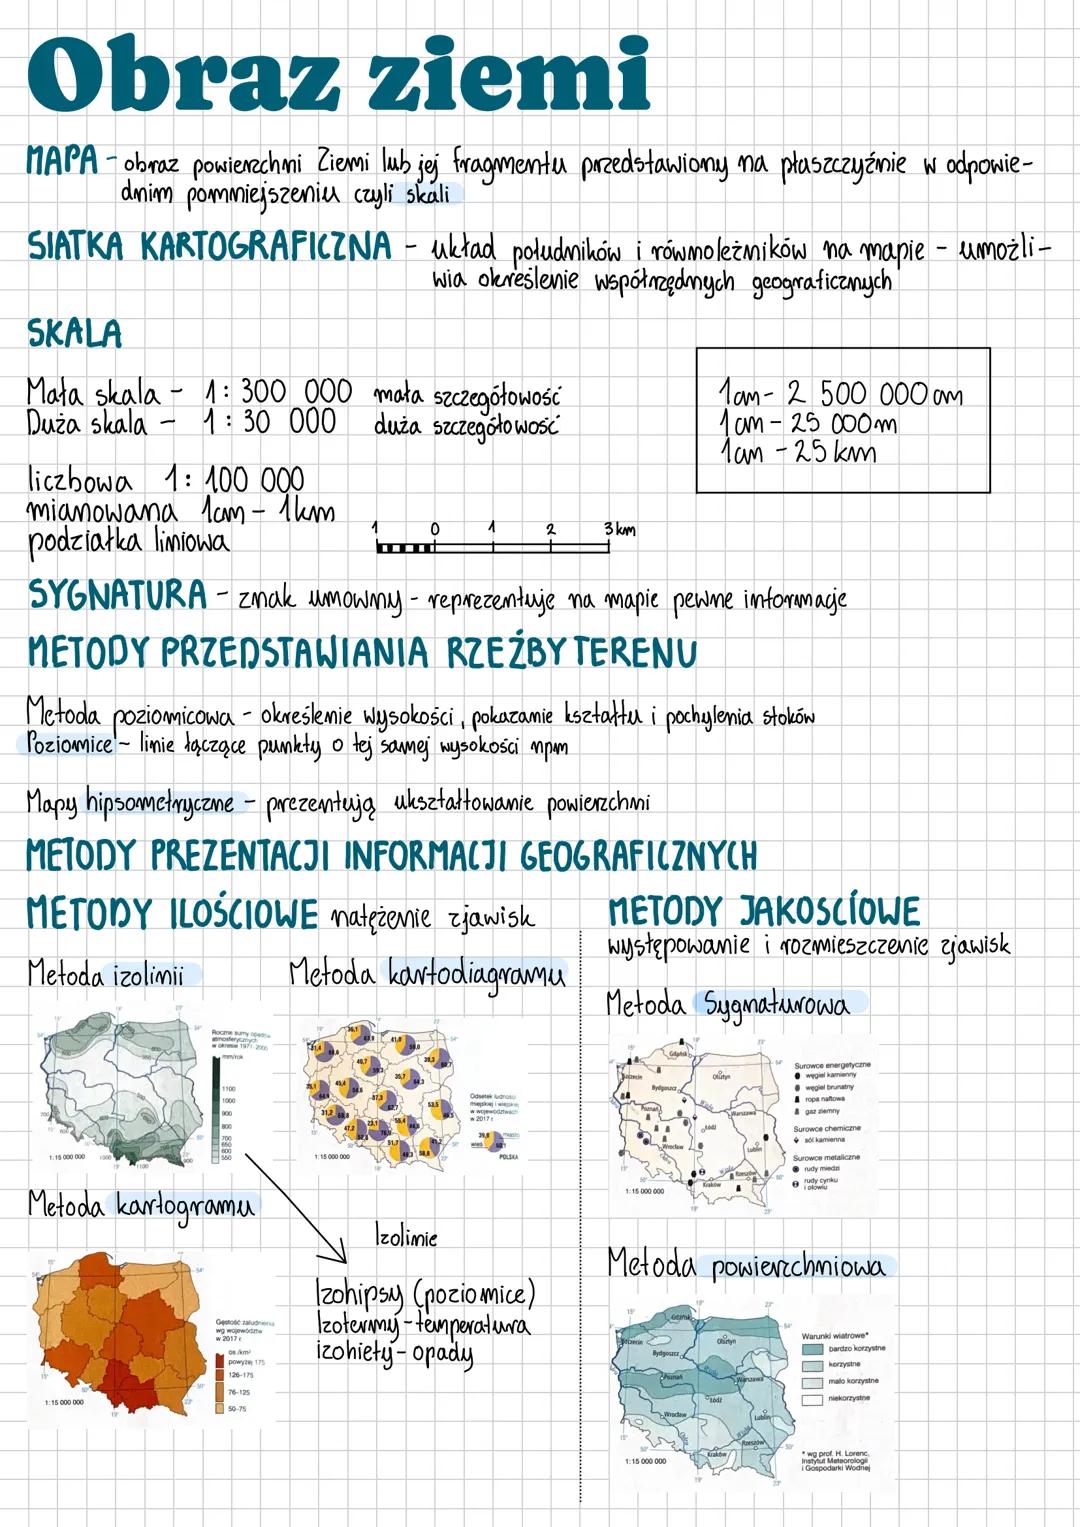 Obraz ziemi
MAPA - obraz powierzchni Ziemi lub jej fragmentu przedstawiony na płaszczyźnie w odpowie-
dnim pomniejszeniu czyli skali
SIATKA KARTOGRAFICZNA - układ południków i równoleżników na mapie - umożli-
wia określenie współrzędnych geograficznych
SKALA
Mała skala - 1: 300 000 mała szczegółowość
Duża skala - 1: 30 000 duża szczegółowość
1cm- 2 500 000 cm
1cm - 25 000m
1cm - 25 km
liczbowa 1: 100 000
mianowana 1cm - 1km
podziałka liniowa
1 0 1 2 3 km
SYGNATURA - znak umowny - reprezentuje na mapie pewne informacje
METODY PRZEDSTAWIANIA RZEŹBY TERENU
Metoda poziomicowa - określenie wysokości, pokazanie kształtu i pochylenia stoków
Poziomice - linie łączące punkty o tej samej wysokości npm
Mapy hipsometryczne - prezentują ukształtowanie powierzchni
METODY PREZENTACJI INFORMACJI GEOGRAFICZNYCH
METODY ILOŚCIOWE natężenie zjawisk
Metoda izolinii
Roczne sumy opadów
atmosferycznych
w okresie 1971-2005
mm/rok
1100
1000
900
800
700
650
600
550
1:15 000 000
Metoda kartodiagramu
Odsetek ludności
miejskiej i wiejskiej
w województwach
w 2017 r.
miasto
wieś
POLSKA
1:15 000 000
Metoda kartogramu
Gęstość zaludnienia
wg województw
w 2017 r.
os./km²
powyżej 175
126-175
76-125
50-75
1:15 000 000
Izolinie
Izohipsy (poziomice)
Izotermy - temperatura
izohiety - opady
METODY JAKOŚCIOWE
występowanie i rozmieszczenie zjawisk
Metoda Sygnaturowa
Gdańsk
Szczecin
Olsztyn
Bydgoszcz
Poznań
Warszawa
Łódź
Wrocław
Lublin
Kraków
Rzeszów
Surowce energetyczne
węgiel kamienny
węgiel brunatny
ropa naftowa
gaz ziemny
Surowce chemiczne
sól kamienna
Surowce metaliczne
rudy miedzi
rudy cynku
i ołowiu
1:15 000 000
Metoda powierzchniowa
Gdańsk
Szczecin
Olsztyn
Bydgoszcz
Poznań
Warszawa
Łódź
Wrocław
Lublin
Kraków
Rzeszów
Warunki wiatrowe*
bardzo korzystne
korzystne
mało korzystne
niekorzystne
* wg prof. H. Lorenc,
Instytut Meteorologii
i Gospodarki Wodnej
1:15 000 000